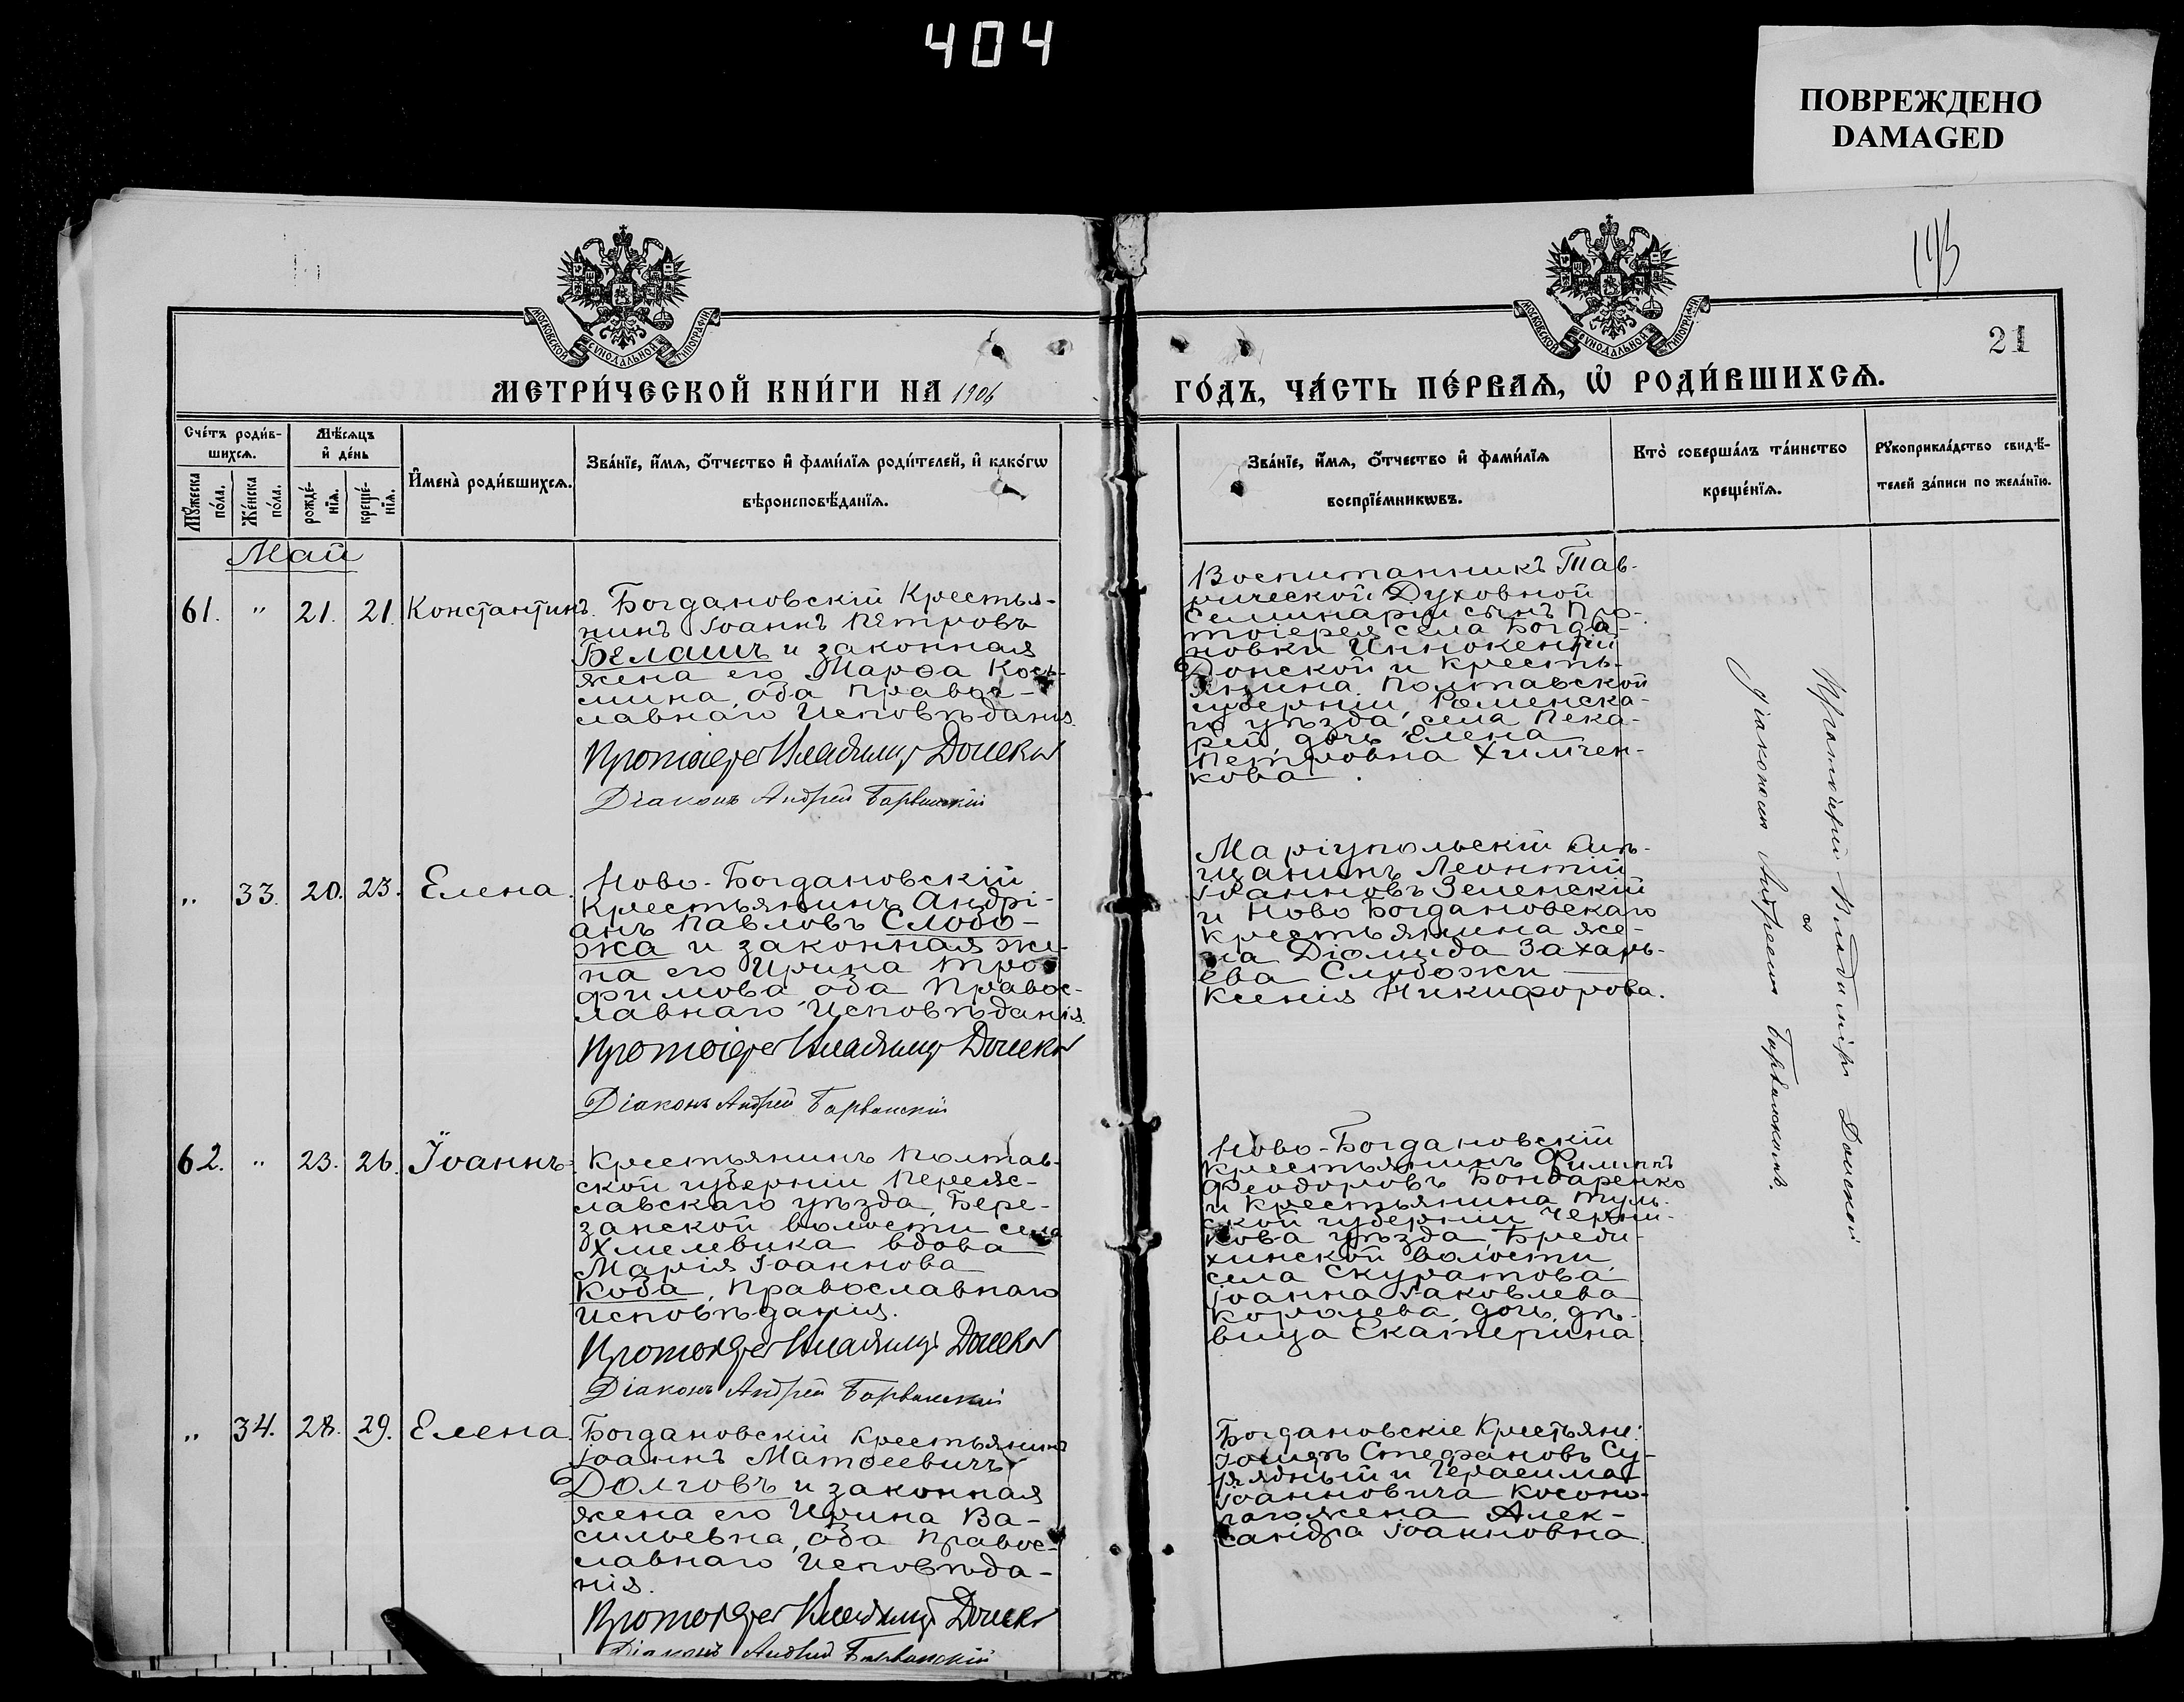 404
ПОВРЕЖДЕНО
DAMAGED
143
21
МОСКОВСКОЙ СУНОДАЛЬНОЙ ТИПОГРАФІИ
МОСКОВСКОЙ СУНОДАЛЬНОЙ ТИПОГРАФІИ
МЕТРИ́ЧЕСКОЙ КНИ́ГИ НА 1906
ГО́ДЪ, ЧА́СТЬ ПЕ́РВАѦ, Ѡ҆ РОДИ́ВШИХСѦ.
Сче́тъ роди́в-
шихсѧ.
Мꙋ́жеска по́ла.
Же́нска по́ла.
Мѣ́сѧцъ
и҆ де́нь
рожде́-
нїѧ.
креще́-
нїѧ.
И҆мена̀ роди́вшихсѧ.
Зва́нїе, и҆́мѧ, ѻ҆́тчество и҆ фами́лїѧ роди́телей, и҆ како́гѡ
вѣроисповѣ́данїѧ.
Зва́нїе, и҆́мѧ, ѻ҆́тчество и҆ фами́лїѧ
воспрїе́мникѡвъ.
Кто̀ соверша́лъ та́инство
креще́нїѧ.
Рꙋкоприкла́дство свидѣ́-
телей за́писи по жела́нїю.
Май
61. " 21. 21. Константинъ.
Богдановскій Крестья-
нинъ Іоаннъ Петровъ
Белашъ и законная
жена его Марѳа Козь-
мина, оба Правос-
лавнаго Исповѣданія.
Протоіерей Владиміръ Донской
Діаконъ Андрей Барвинскій
Воспитанникъ Тав-
рической Духовной
Семинаріи сынъ Про-
тоіерея села Богда-
новки Иннокентій
Донской и крестья-
янина Полтавской
губерніи, Роменска-
го уѣзда, села Пека-
рей, дочь Елена
Петровна Химчен-
кова.
" 33. 20. 23. Елена.
Ново-Богдановскій
крестьянинъ Андрі-
анъ Павловъ Слобо-
жа и законная же-
на его Ирина Тро-
фимова, оба Правос-
лавнаго Исповѣданія.
Протоіерей Владиміръ Донской
Діаконъ Андрей Барвинскій
Маріупольскій мѣ-
щанинъ Леонтій
Іоанновъ Зеленскій
и Ново Богдановскаго
крестьянина же-
на Діомида Захарь-
ева Слободжи
Ксенія Никифорова.
62. " 23. 26. Іоаннъ.
Крестьянинъ Полтав-
ской губерніи Переяс-
лавскаго уѣзда, Бере-
занской волости села
Хмелевика вдова
Марія Іоаннова
Коба, Православнаго
исповѣданія.
Протоіерей Владиміръ Донской
Діаконъ Андрей Барвинскій
Ново-Богдановскій
крестьянинъ Филиппъ
Феодоровъ Бондаренко
и крестьянина Туль-
ской губерніи Черни-
кова уѣзда, Бреди-
хинской волости,
села Скуратова
Іоанна Іаковлева
Королева, дочь, дѣ-
вица Екатерина.
" 34. 28. 29. Елена.
Богдановскій крестьянинъ
Іоаннъ Матѳеевичъ
Долговъ и законная
жена его Ирина Ва-
сильевна, оба Правос-
лавнаго Исповѣда-
нія.
Протоіерей Владиміръ Донской
Діаконъ Андрей Барвинскій
Богдановскіе Крестьяне:
Стефановъ Су-
и Герасима
Іоанновича Косоно-
гого жена Алек-
сандра Іоанновна.
Протоіерей Владиміръ Донской
съ
діакономъ Андреемъ Барвинскимъ.